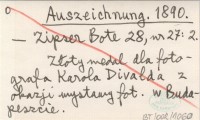 Auszeichnung. 1890.
— Zipser Bote 28, nr 27: 2.
Złoty medal dla foto-
grafa Karola Divalda z
okazji wystawy fot. w Buda-
peszcie.